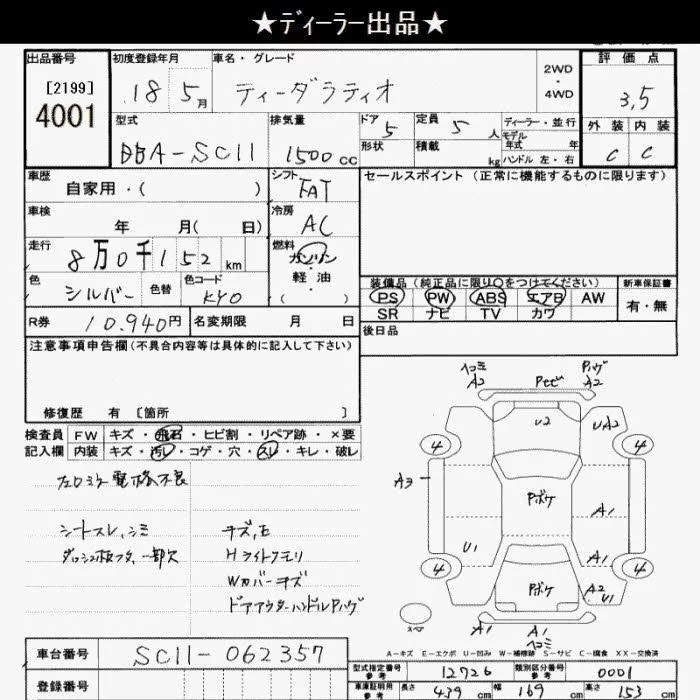 ★ディーラー出品★
出品番号 初度登録年月 車名・グレード 2WD・4WD 評価点
[2199] 4001 18 5月 ティーダラティオ 3,5
型式 排気量 ドア 5 定員 5人 ディーラー・並行 外装 内装
形状 積載 kg モデル年式 年 ハンドル 左・右
DBA-SC11 1500cc C C
車歴 シフト セールスポイント (正常に機能するものに限ります)
自家用・( ) FAT
車検 年 月( 日) 冷房 AC
走行 8万0千152km 燃料 ガソリン・軽油 ( )
色 シルバー 色替 色コード KY0
装備品 (純正品に限り○をつけてください) 新車保証書
PS PW ABS エアB AW 有・無
SR ナビ TV カワ
R券 10,940円 名変期限 月 日 後日品
注意事項申告欄(不具合内容等は具体的に記入して下さい)
修復歴 有 [箇所 ]
検査員 FW キズ・飛石・ヒビ割・リペア跡・×要
記入欄 内装 キズ・汚レ・コゲ・穴・スレ・キレ・破レ
ヘコミ A2 Pセビ Pハゲ A2
U2 UA2
4 4
A3 Pボケ A1
U1 A1
4 4
Pボケ A2 U1
スペア A1 A1 ヘコミ
電格不良
シートスレ、シミ キズ、E
一部欠 Hライトクモリ
Wカバーキズ
ドアアウターハンドルPハゲ
A-キズ E-エクボ U-凹み W-補修跡 S-サビ C-腐食 XX-交換済
車台番号 SC11-062357
型式指定番号 参考 12726 類別区分番号 参考 0001
登録番号 車庫証明用 参考 長さ 439 cm 幅 169 cm 高さ 153 cm